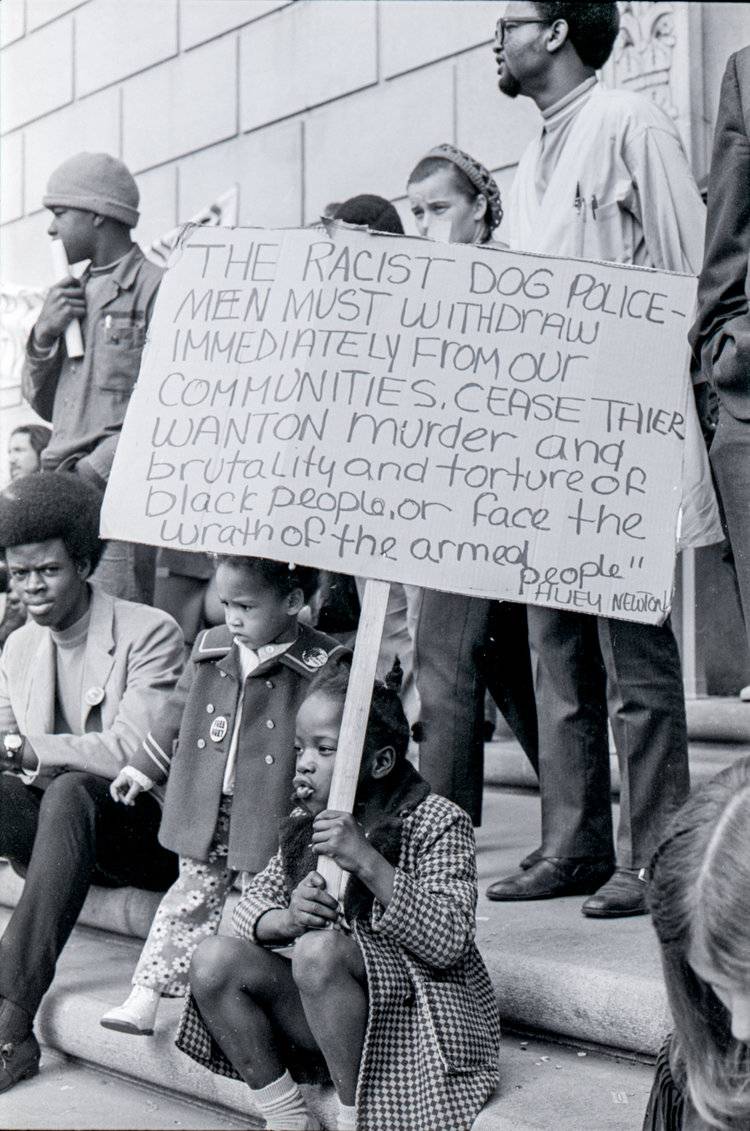 THE RACIST DOG POLICE-
MEN MUST WITHDRAW
IMMEDIATELY FROM OUR
COMMUNITIES, CEASE THIER
WANTON murder and
brutality and torture of
black people, or face the
wrath of the armed
people"
HUEY NEWTON
FREE
HUEY